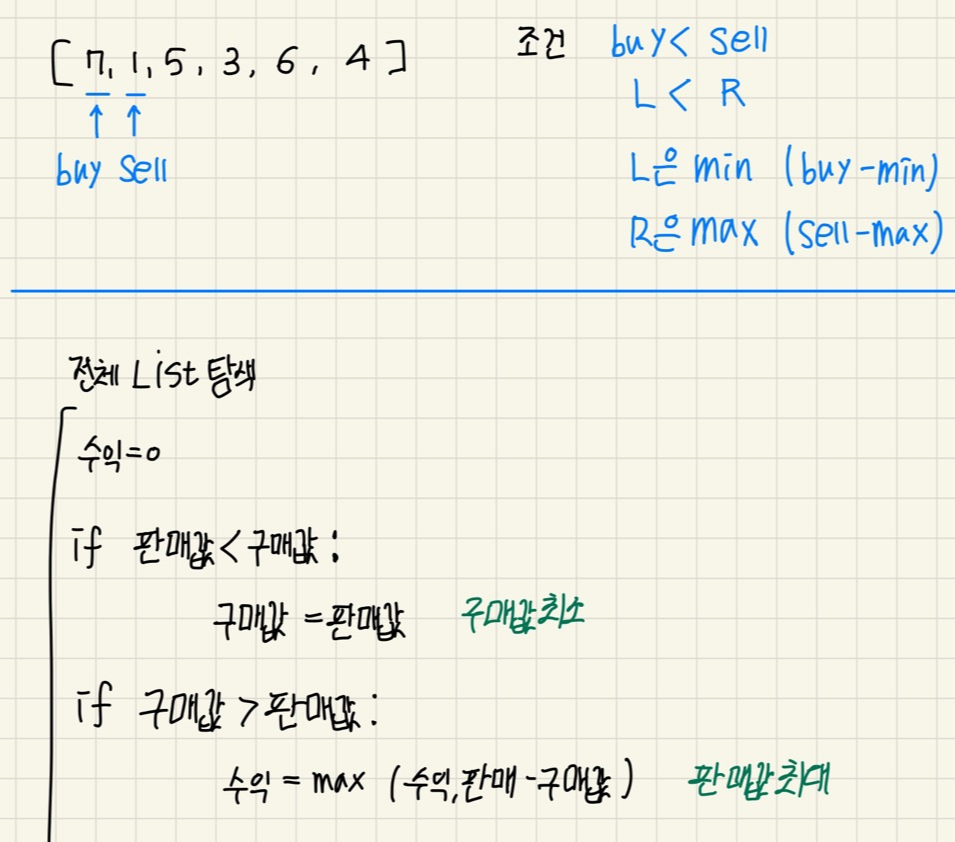 [ 7, 1, 5, 3, 6, 4 ]
조건 buy < sell
L < R
↑ ↑
buy sell
L은 min (buy-min)
R은 max (sell-max)
전체 List 탐색
수익=0
if 판매값 < 구매값 :
구매값 = 판매값 구매값 최소
if 구매값 > 판매값 :
수익 = max (수익, 판매 - 구매값) 판매값 최대